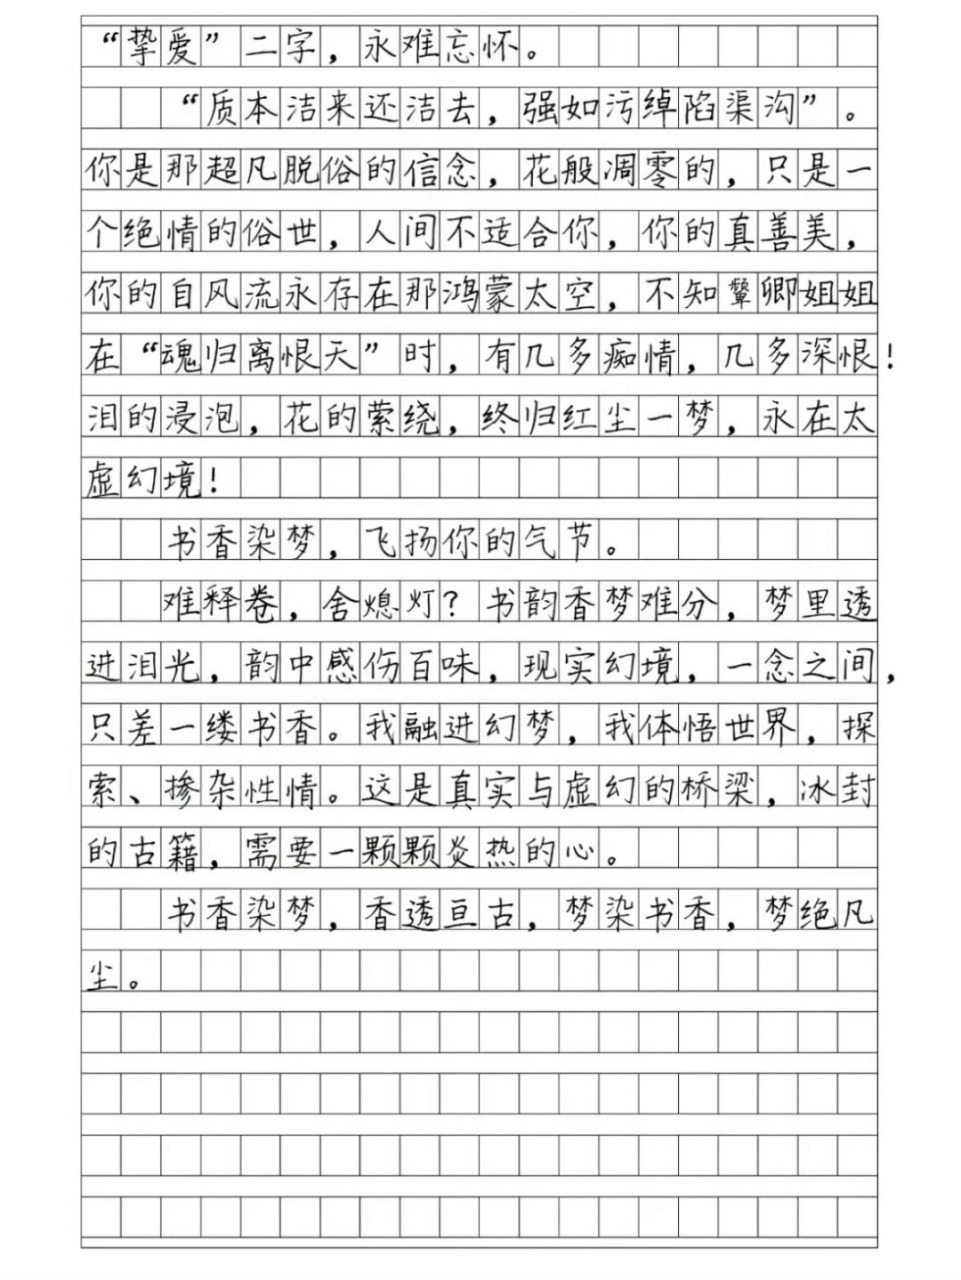 “挚爱”二字，永难忘怀。
“质本洁来还洁去，强如污绰陷渠沟”。
你是那超凡脱俗的信念，花般凋零的，只是一
个绝情的俗世，人间不适合你，你的真善美，
你的自风流永存在那鸿蒙太空，不知颦卿姐姐
在“魂归离恨天”时，有几多痴情，几多深恨！
泪的浸泡，花的萦绕，终归红尘一梦，永在太
虚幻境！
书香染梦，飞扬你的气节。
难释卷，舍熄灯？书韵香梦难分，梦里透
进泪光，韵中感伤百味，现实幻境，一念之间，
只差一缕书香。我融进幻梦，我体悟世界，探
索、掺杂性情。这是真实与虚幻的桥梁，冰封
的古籍，需要一颗颗炎热的心。
书香染梦，香透亘古，梦染书香，梦绝凡
尘。